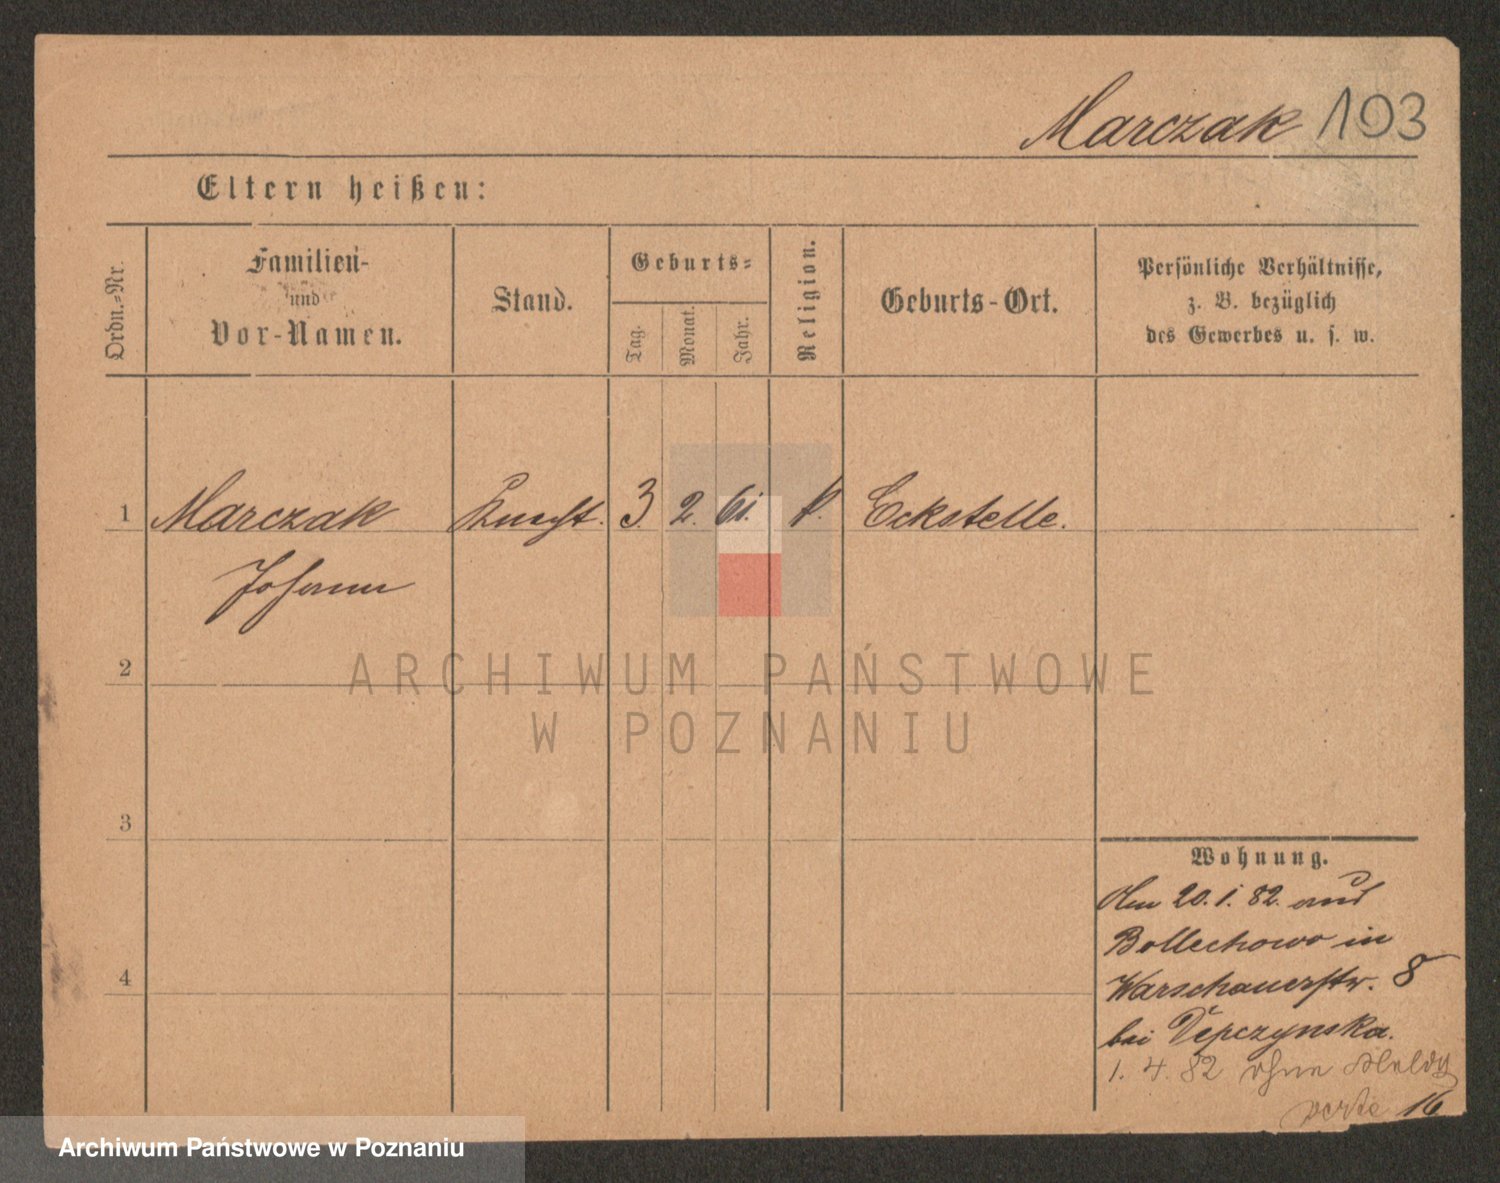 Marczak 103
Eltern heißen:
Ordn.-Nr.
Familien-
und
Vor-Namen.
Stand.
Geburts-
Tag.
Monat.
Jahr.
Religion.
Geburts-Ort.
Persönliche Verhältnisse,
z. B. bezüglich
des Gewerbes u. s. w.
1 Marczak Knecht. 3. 2. 61. k. Eckstelle.
Johann
2
ARCHIWUM PAŃSTWOWE
W POZNANIU
3
Wohnung.
Am 20. 1. 82. aus
Bollechowo in
Warschauerstr. 8
4
bei Depczynska.
1. 4. 82 ohne Meldg
verte 16
Archiwum Państwowe w Poznaniu